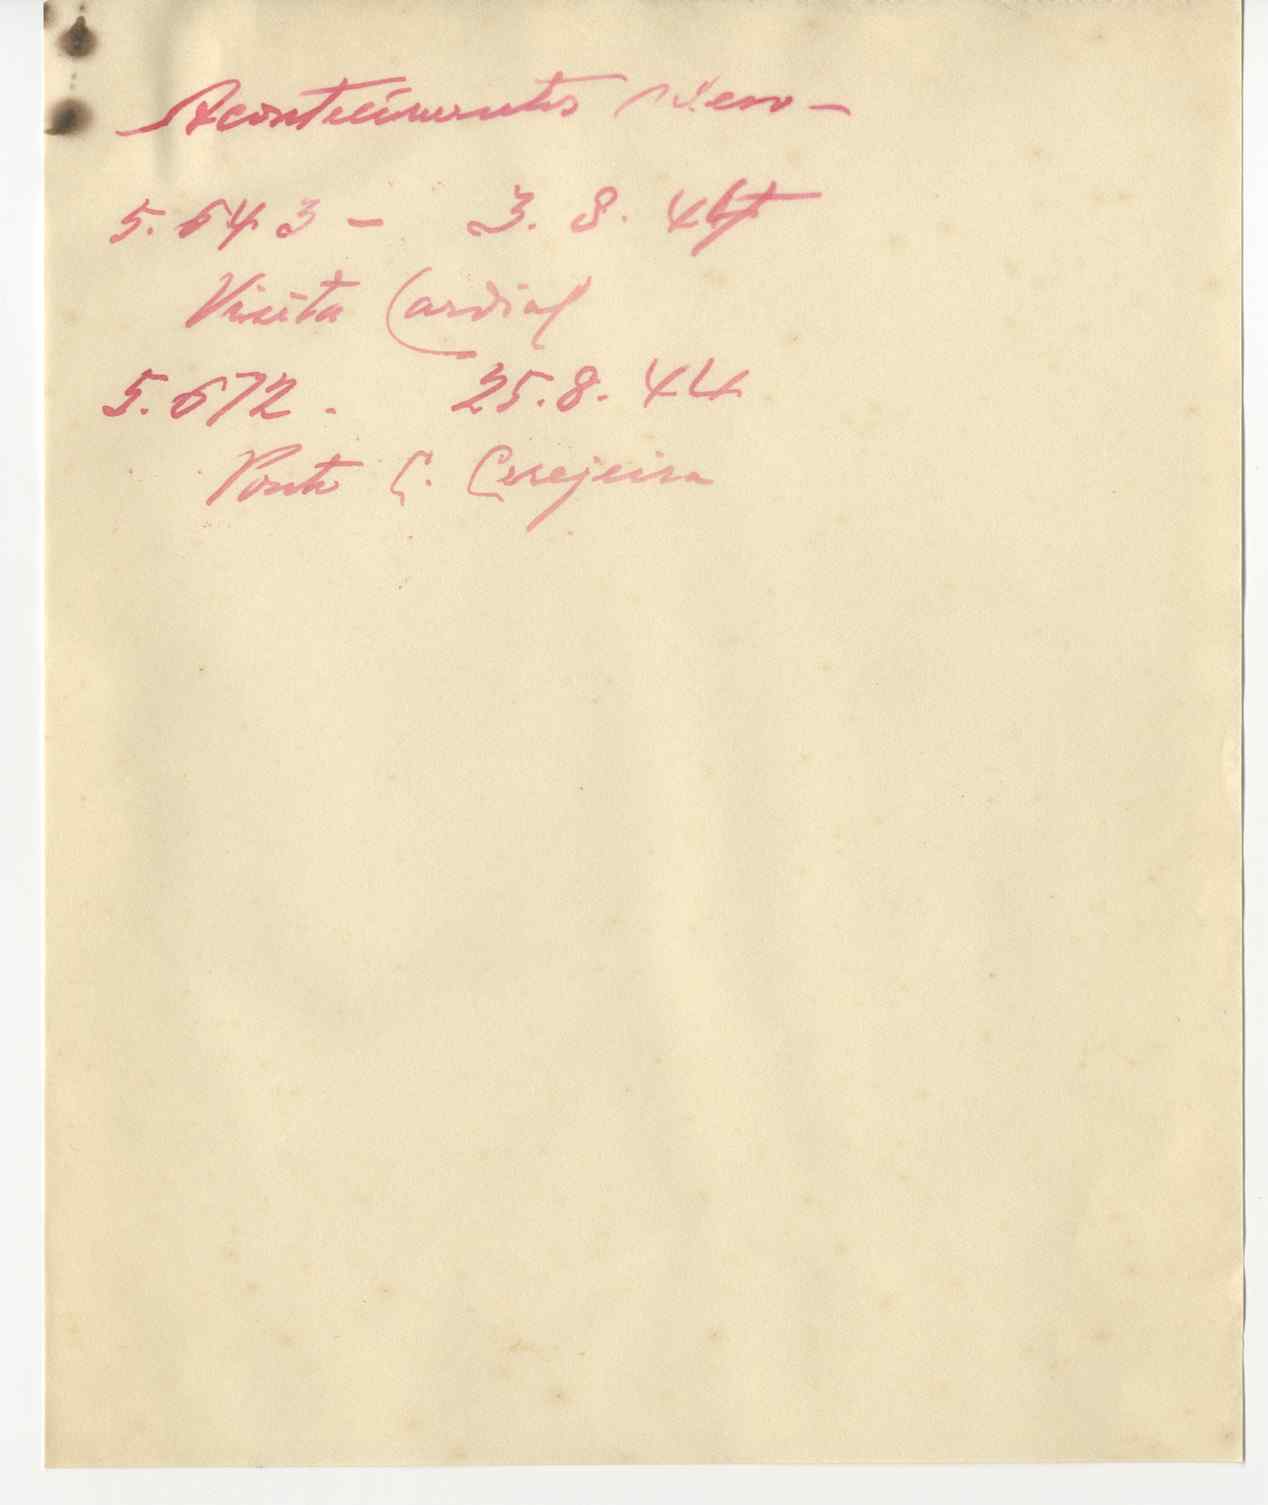 Acontecimentos
5.643 - 3. 8. 44
Visita Cardial
5.672. 25.8.44
Ponte C. Cerejeira